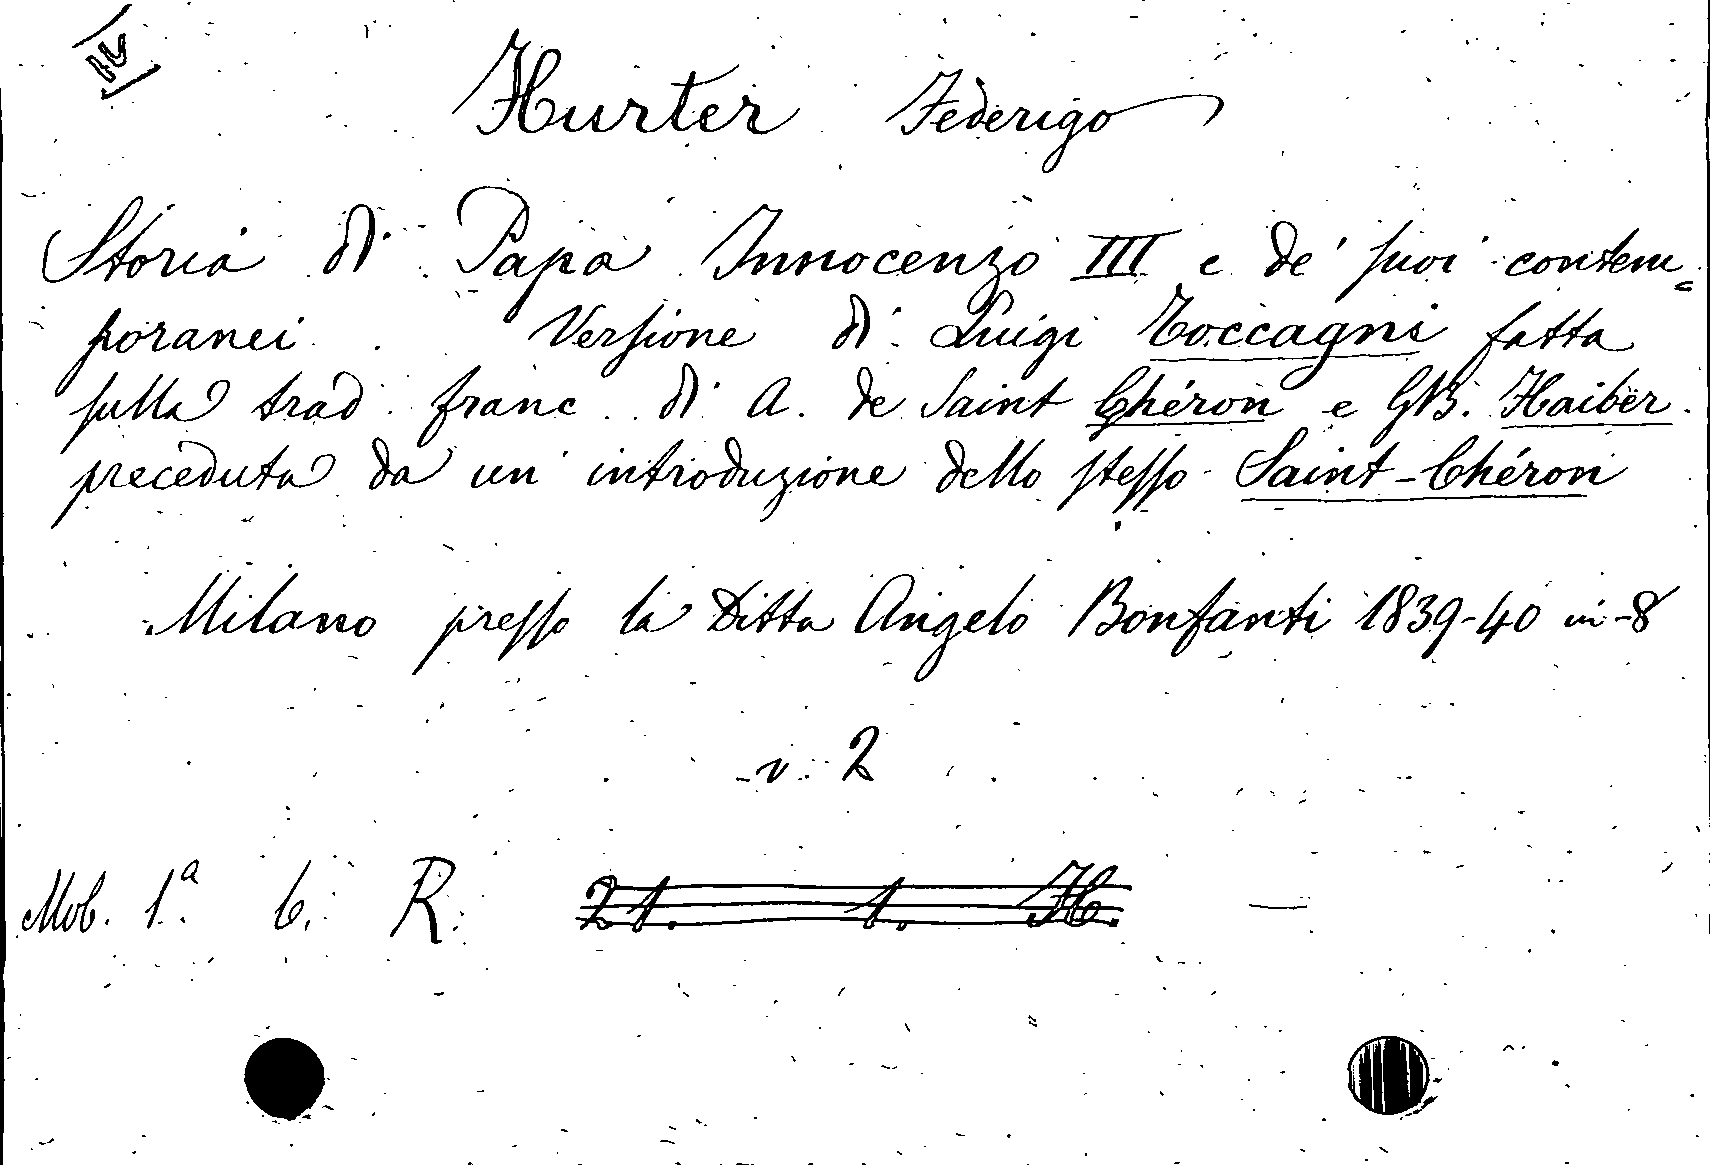 Hurter Federigo
Storia di Papa Innocenzo III e de' suoi contem=
poranei Versione di Luigi Toccagni fatta
sulla trad. franc. di A. de Saint Chéron e G.B. Haiber.
preceduta da un' introduzione dello stesso Saint-Chéron
Milano presso la Ditta Angelo Bonfanti 1839-40 in-8
v. 2
Mob. 1ª. 6. R. 21. 1. H. —